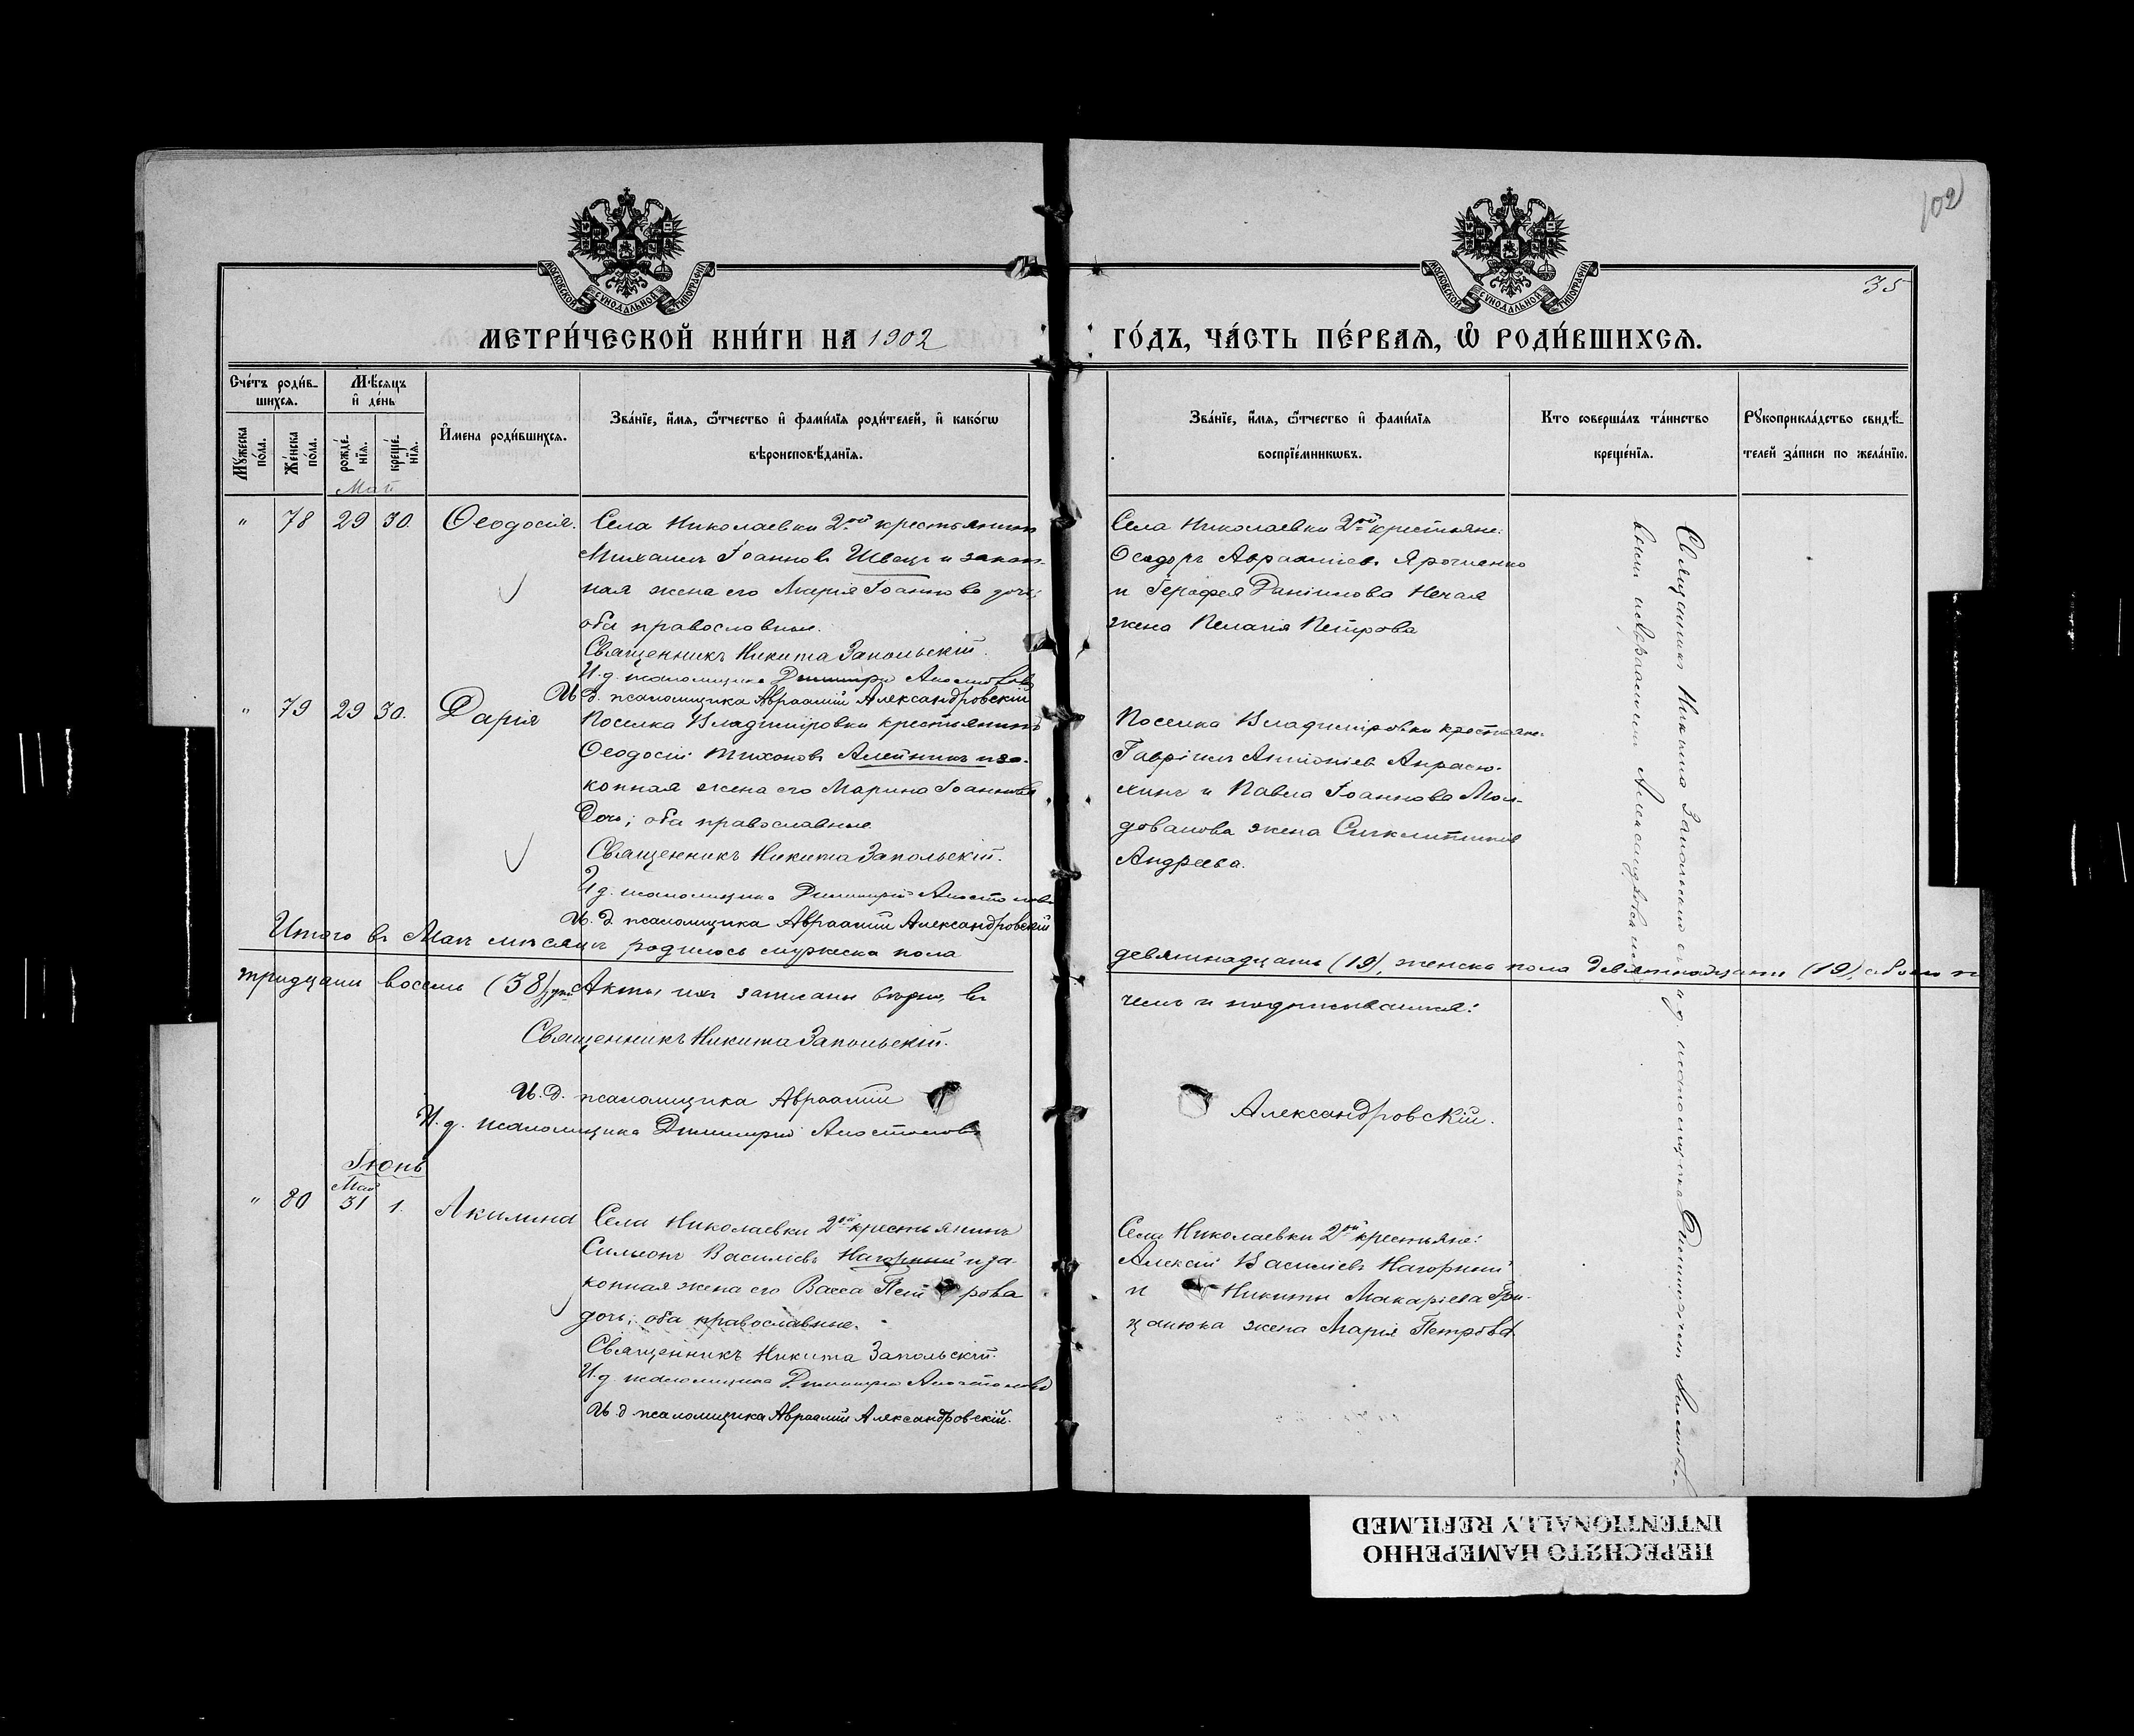 102
35
МОСКОВСКОЙ СѴНОДАЛЬНОЙ ТИПОГРАФІИ
МОСКОВСКОЙ СѴНОДАЛЬНОЙ ТИПОГРАФІИ
МЕТРИ́ЧЕСКОЙ КНИ́ГИ НА 1902 ГО́ДЪ, ЧА́СТЬ ПЕ́РВАЯ, Ѡ РОДИ́ВШИХСЯ.
Сче́тъ роди́в-
шихся.
Мꙋ́жеска по́ла.
Же́нска по́ла.
Мѣ́сяцъ
и҆ де́нь
рожде́-
нїѧ.
креще́-
нїѧ.
И҆мена роди́вшихся.
Зва́нїе, и҆́мя, ѻ҆́тчество и҆ фами́лїя роди́телей, и҆ како́гѡ
вѣроисповѣ́данїя.
Зва́нїе, и҆́мя, ѻ҆́тчество и҆ фами́лїя
воспрїе́мникѡвъ.
Кто соверша́лъ та́инство
креще́нїя.
Рꙋкоприкла́дство свидѣ́-
телей за́писи по жела́нїю.
Май
" 78 29 30. Ѳеодосія.
Села Николаевки 2ой крестьянинъ
Михаилъ Іоанновъ Швецъ и закон-
ная жена его Марія Іоаннова дочь;
оба православные.
Священникъ Никита Запольскій.
И. д. псаломщика Димитрій Апостоловъ
И. д. псаломщика Авраамій Александровскій
Села Николаевки 2ой крестьяне:
Ѳеодоръ Авраамiевъ Ярошенко
и Герофея Даніилова Нечая
жена Пелагія Петрова
" 79 29 30. Дарія
Поселка Владиміровки крестьянинъ
Ѳеодосій Тихоновъ Алейникъ и за-
конная жена его Марина Іоаннова
дочь; оба православные.
Священникъ Никита Запольскій.
И д. псаломщика Димитрій Апостоловъ
И. д. псаломщика Авраамій Александровскій
Поселка Владиміровки крестьяне:
Гавріилъ Антоніевъ Апрасю-
хинъ и Павла Іоаннова Мол-
дованова жена Синклитикія
Андреева.
Священникъ Никита Запольскій съ и. д. псаломщика Димитріемъ Апостоло-
вымъ и Авраамiемъ Александровскимъ
Итого въ Маѣ мѣсяцѣ родилось мужеска пола девятнадцать (19), женска пола девятнадцать (19), обоего п
тридцать восемь (38) душъ Акты ихъ записаны вѣрно, въ чемъ и подписываемся:
Священникъ Никита Запольскій.
И. д. псаломщика Авраамій Александровскій.
И. д. псаломщика Димитрій Апостоловъ
Іюнь
Май
" 80 31 1. Акилина
Села Николаевки 2ой крестьянинъ
Симеонъ Василіевъ Нагорный и за-
конная жена его Васса Петрова
дочь; оба православные.
Священникъ Никита Запольскій.
И. д. псаломщика Димитрій Апостоловъ
И. д. псаломщика Авраамій Александровскій.
Села Николаевки 2ой крестьяне:
Алексій Василіевъ Нагорный
и Никиты Макаріева Гри-
цанюка жена Марія Петрова
ПЕРЕСНЯТО НАМЕРЕННО
INTENTIONALLY REFILMED